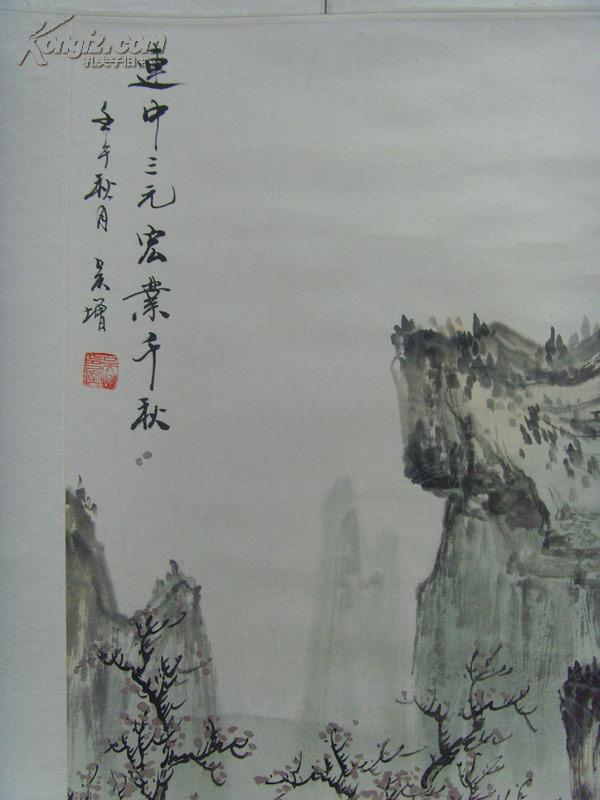 連中三元宏業千秋
壬午秋月 吴增
Kongfz.com
孔夫子旧书网